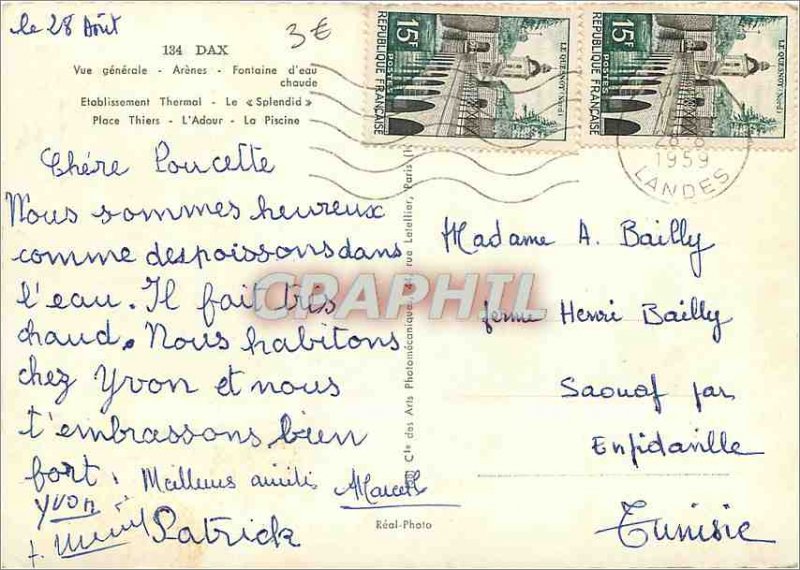 le 28 Août
3€
134 DAX
Vue générale - Arènes - Fontaine d'eau
chaude
Etablissement Thermal - Le « Splendid »
Place Thiers - L'Adour - La Piscine
15F
REPUBLIQUE FRANÇAISE
LE QUESNOY (Nord)
15F
REPUBLIQUE FRANÇAISE
LE QUESNOY (Nord)
1959
LANDES
Chére Poucette
Nous sommes heureux
comme des poissons dans
l'eau. Il fait très
chaud. Nous habitons
chez Yvon et nous
t'embrassons bien
fort.
Meilleures amitiés Marcel
Yvon
Patrick
Cie des Arts Photomécaniques rue Letellier, Paris
Réal-Photo
Madame A. Bailly
ferme Henri Bailly
Saouaf par
Enfidaville
Tunisie
CRAPHIL